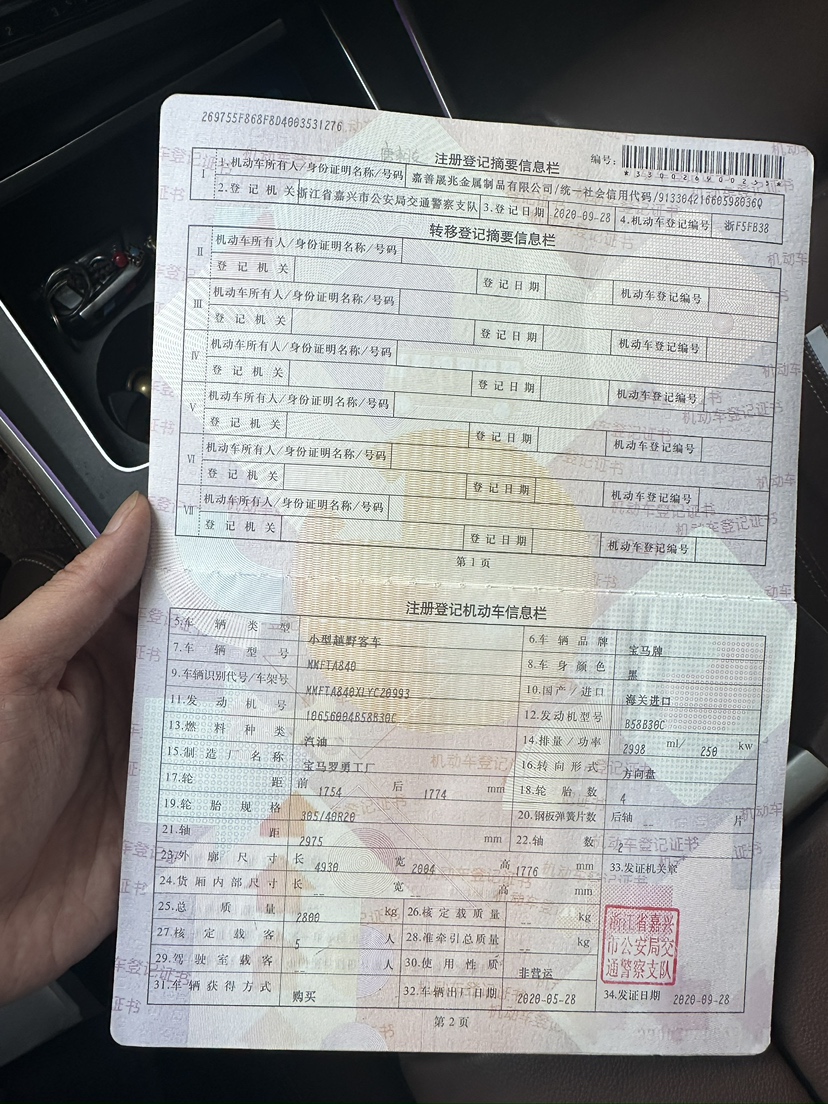 269755F868F8D4003531276
注册登记摘要信息栏
编号:
*330026900253*
Ⅰ 1.机动车所有人/身份证明名称/号码 嘉善晟兆金属制品有限公司/统一社会信用代码/91330421660598036Q
2.登记机关 浙江省嘉兴市公安局交通警察支队 3.登记日期 2020-09-28 4.机动车登记编号 浙F5FB38
转移登记摘要信息栏
Ⅱ 机动车所有人/身份证明名称/号码
登记机关 登记日期 机动车登记编号
Ⅲ 机动车所有人/身份证明名称/号码
登记机关 登记日期 机动车登记编号
Ⅳ 机动车所有人/身份证明名称/号码
登记机关 登记日期 机动车登记编号
Ⅴ 机动车所有人/身份证明名称/号码
登记机关 登记日期 机动车登记编号
Ⅵ 机动车所有人/身份证明名称/号码
登记机关 登记日期 机动车登记编号
Ⅶ 机动车所有人/身份证明名称/号码
登记机关 登记日期 机动车登记编号
第1页
注册登记机动车信息栏
5.车辆类型 小型越野客车 6.车辆品牌 宝马牌
7.车辆型号 MMFTA840 8.车身颜色 黑
9.车辆识别代号/车架号 MMFTA840XLYC20993 10.国产/进口 海关进口
11.发动机号 10656004B58B30C 12.发动机型号 B58B30C
13.燃料种类 汽油 14.排量/功率 2998 ml/ 250 kw
15.制造厂名称 宝马罗勇工厂 16.转向形式 方向盘
17.轮距 前 1754 后 1774 mm 18.轮胎数 4
19.轮胎规格 305/40R20 20.钢板弹簧片数 后轴 -- 片
21.轴距 2975 mm 22.轴数 2
23.外廓尺寸 长 4930 宽 2004 高 1776 mm 33.发证机关章
24.货厢内部尺寸 长 -- 宽 -- 高 -- mm
25.总质量 2800 kg 26.核定载质量 -- kg
27.核定载客 5 人 28.准牵引总质量 -- kg
29.驾驶室载客 -- 人 30.使用性质 非营运
浙江省嘉兴
市公安局交
通警察支队
31.车辆获得方式 购买 32.车辆出厂日期 2020-05-28 34.发证日期 2020-09-28
第2页